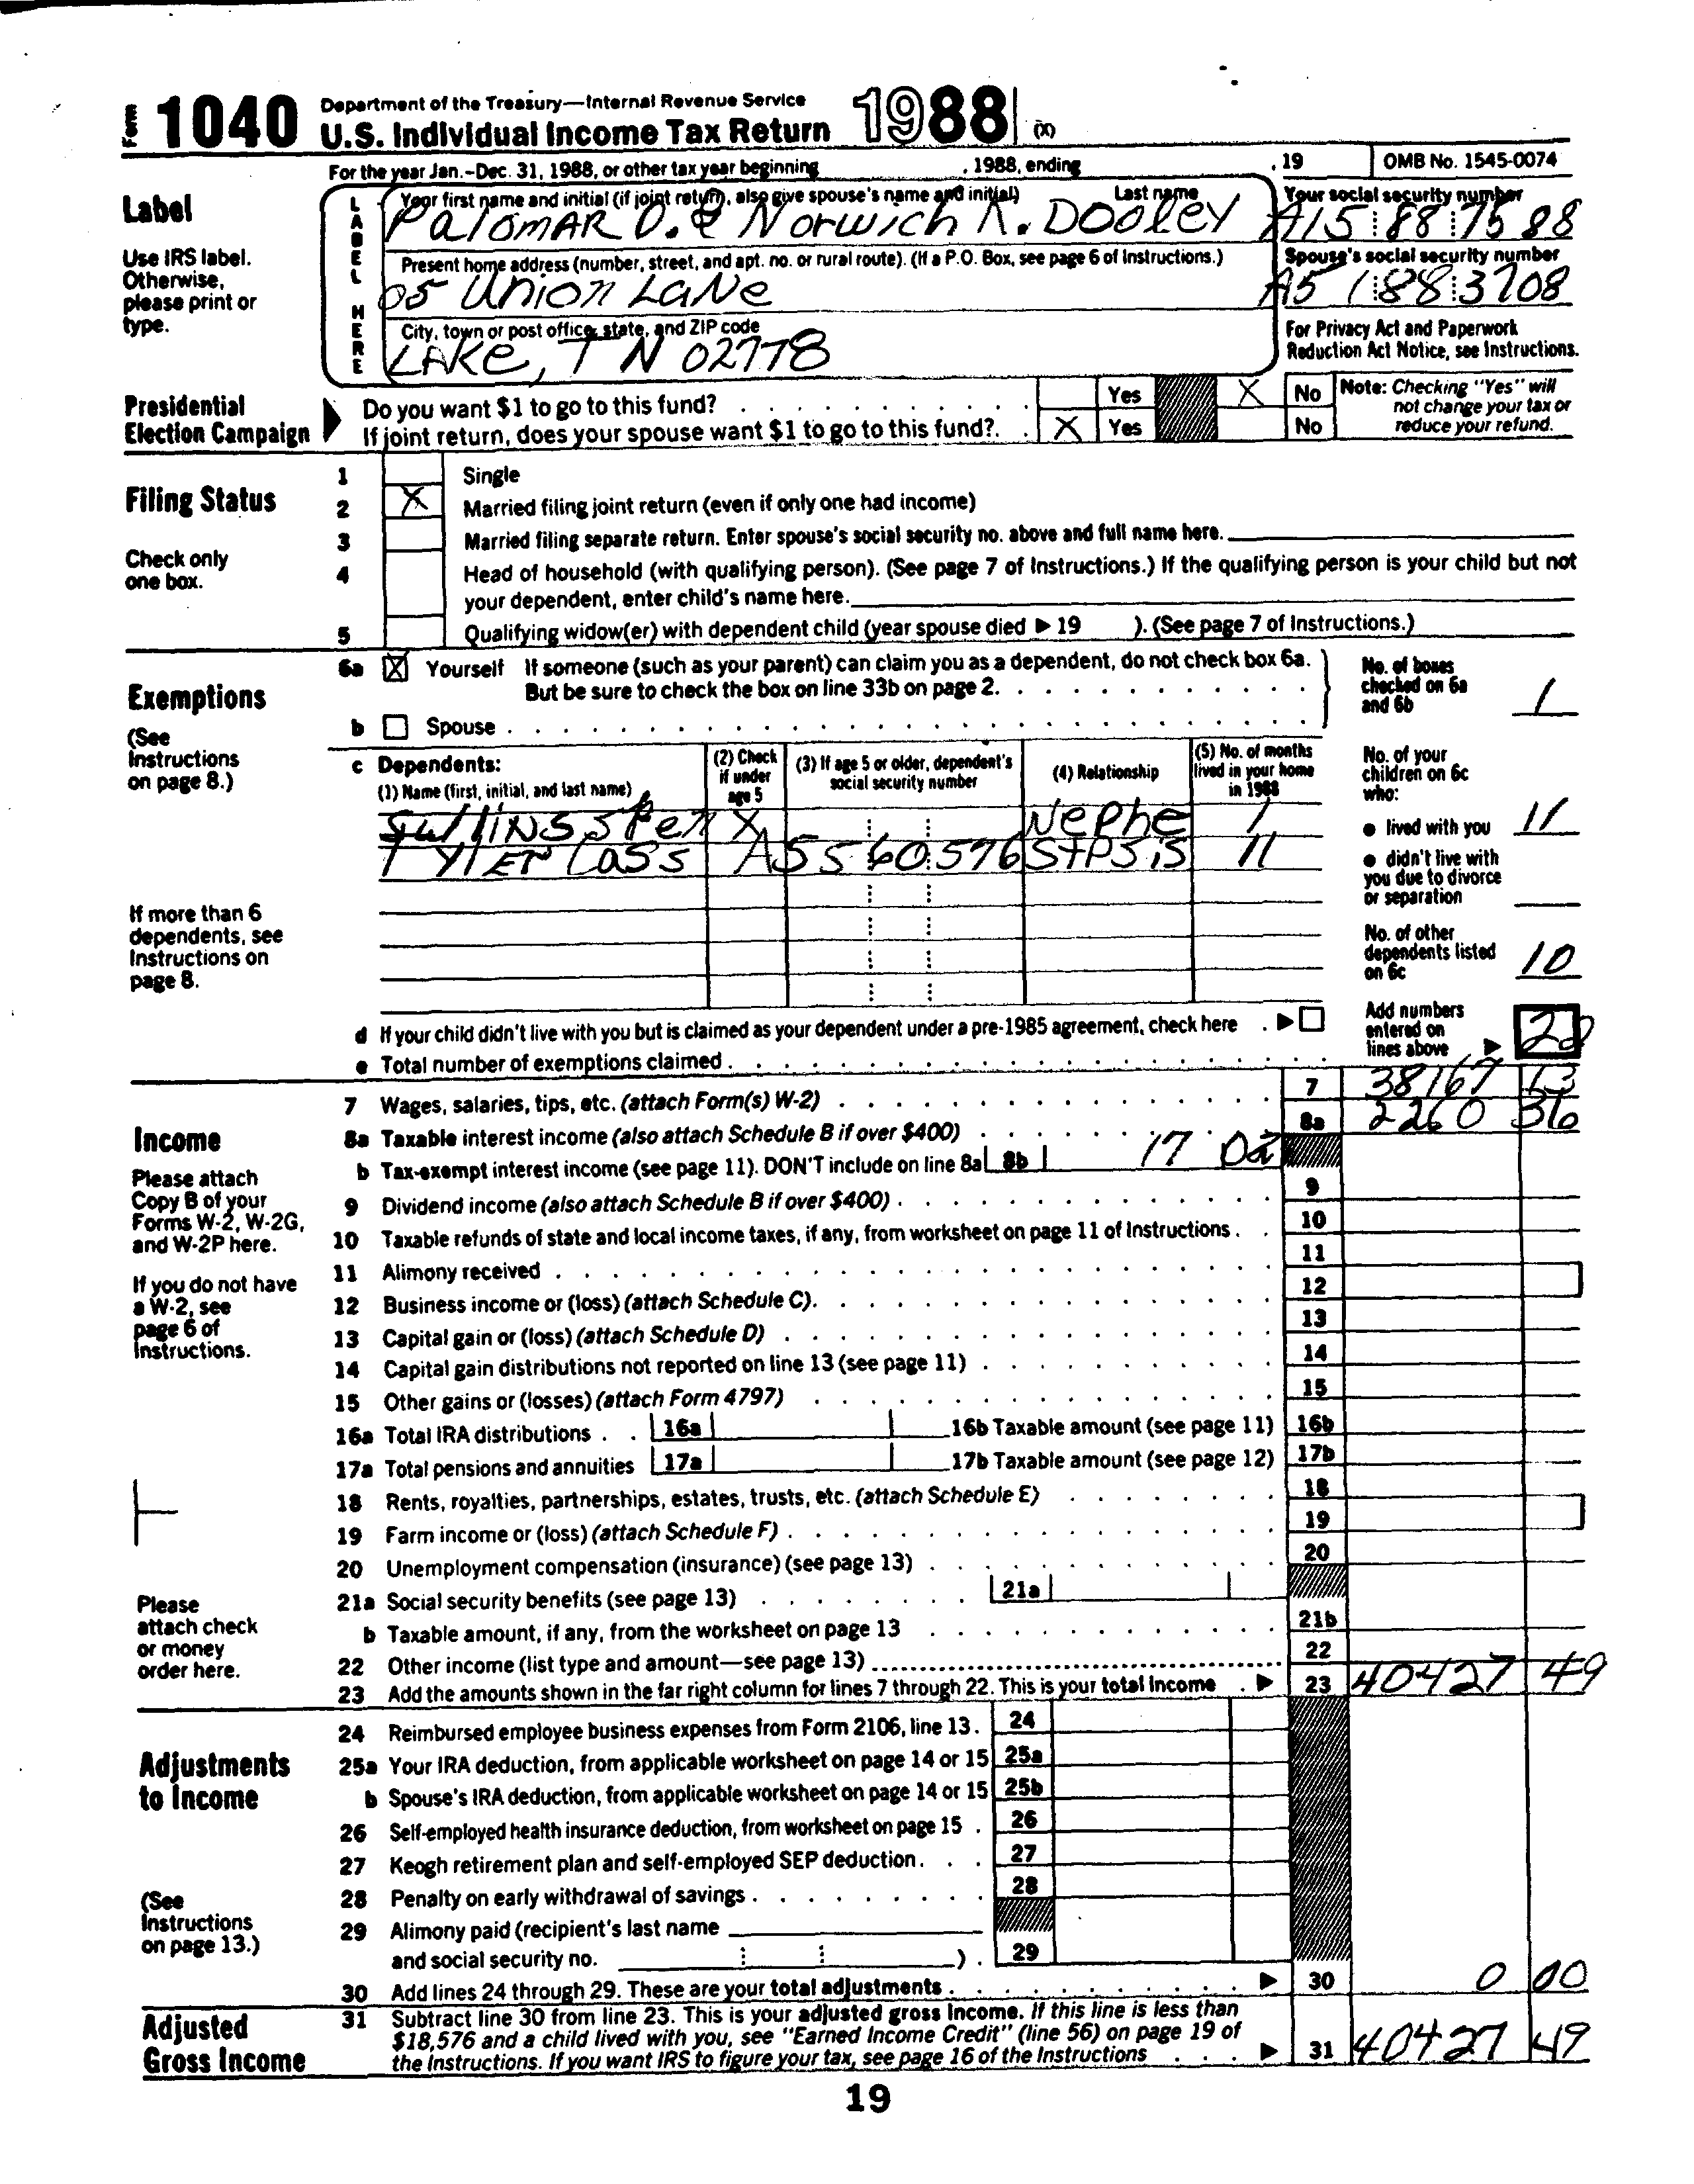 Form 1040 Department of the Treasury—Internal Revenue Service
U.S. Individual Income Tax Return 1988 (X)
For the year Jan.-Dec. 31, 1988, or other tax year beginning , 1988, ending , 19 OMB No. 1545-0074
Label
Use IRS label. Otherwise, please print or type.
LABEL HERE
Your first name and initial (if joint return, also give spouse's name and initial) Last name
Palomar D. & Norwich K. Dooley
Your social security number
A15 88 7588
Present home address (number, street, and apt. no. or rural route). (If a P.O. Box, see page 6 of Instructions.)
05 Union Lane
Spouse's social security number
A51 88 3708
City, town or post office, state, and ZIP code
Lake, TN 02778
For Privacy Act and Paperwork Reduction Act Notice, see Instructions.
Presidential Election Campaign
Do you want $1 to go to this fund? Yes X No
If joint return, does your spouse want $1 to go to this fund? X Yes No
Note: Checking "Yes" will not change your tax or reduce your refund.
Filing Status
Check only one box.
1 Single
2 X Married filing joint return (even if only one had income)
3 Married filing separate return. Enter spouse's social security no. above and full name here.
4 Head of household (with qualifying person). (See page 7 of Instructions.) If the qualifying person is your child but not
your dependent, enter child's name here.
5 Qualifying widow(er) with dependent child (year spouse died ▶ 19 ). (See page 7 of Instructions.)
Exemptions
(See Instructions on page 8.)
6a X Yourself If someone (such as your parent) can claim you as a dependent, do not check box 6a.
But be sure to check the box on line 33b on page 2.
b Spouse
No. of boxes checked on 6a and 6b 1
c Dependents:
(1) Name (first, initial, and last name)
(2) Check if under age 5
(3) If age 5 or older, dependent's social security number
(4) Relationship
(5) No. of months lived in your home in 1988
Sullins Spen X Nephe 1
Tyler Cass A55 60 576 StpSis 11
No. of your children on 6c who:
● lived with you 11
● didn't live with you due to divorce or separation
No. of other dependents listed on 6c 10
If more than 6 dependents, see Instructions on page 8.
d If your child didn't live with you but is claimed as your dependent under a pre-1985 agreement, check here ▶
e Total number of exemptions claimed
Add numbers entered on lines above ▶ 22
Income
Please attach Copy B of your Forms W-2, W-2G, and W-2P here.
If you do not have a W-2, see page 6 of Instructions.
Please attach check or money order here.
7 Wages, salaries, tips, etc. (attach Form(s) W-2) 7 38167 13
8a Taxable interest income (also attach Schedule B if over $400) 8a 2260 36
b Tax-exempt interest income (see page 11). DON'T include on line 8a 8b 17 02
9 Dividend income (also attach Schedule B if over $400) 9
10 Taxable refunds of state and local income taxes, if any, from worksheet on page 11 of Instructions 10
11 Alimony received 11
12 Business income or (loss) (attach Schedule C) 12
13 Capital gain or (loss) (attach Schedule D) 13
14 Capital gain distributions not reported on line 13 (see page 11) 14
15 Other gains or (losses) (attach Form 4797) 15
16a Total IRA distributions 16a 16b Taxable amount (see page 11) 16b
17a Total pensions and annuities 17a 17b Taxable amount (see page 12) 17b
18 Rents, royalties, partnerships, estates, trusts, etc. (attach Schedule E) 18
19 Farm income or (loss) (attach Schedule F) 19
20 Unemployment compensation (insurance) (see page 13) 20
21a Social security benefits (see page 13) 21a
b Taxable amount, if any, from the worksheet on page 13 21b
22 Other income (list type and amount—see page 13) 22
23 Add the amounts shown in the far right column for lines 7 through 22. This is your total income ▶ 23 40427 49
Adjustments to Income
(See Instructions on page 13.)
24 Reimbursed employee business expenses from Form 2106, line 13. 24
25a Your IRA deduction, from applicable worksheet on page 14 or 15 25a
b Spouse's IRA deduction, from applicable worksheet on page 14 or 15 25b
26 Self-employed health insurance deduction, from worksheet on page 15 26
27 Keogh retirement plan and self-employed SEP deduction 27
28 Penalty on early withdrawal of savings 28
29 Alimony paid (recipient's last name
and social security no. ) 29
30 Add lines 24 through 29. These are your total adjustments ▶ 30 0 00
Adjusted Gross Income
31 Subtract line 30 from line 23. This is your adjusted gross income. If this line is less than
$18,576 and a child lived with you, see "Earned Income Credit" (line 56) on page 19 of
the Instructions. If you want IRS to figure your tax, see page 16 of the Instructions ▶ 31 40427 49
19